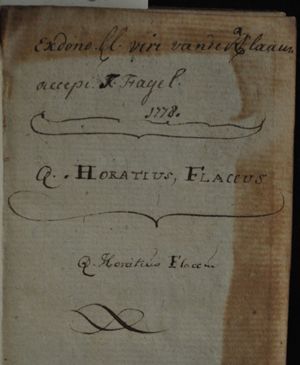 Ex dono Cl. viri vande
accepi. F. Fagel.
1778.
Q. HORATIUS, FLACCUS
Q. Horatius Flaccus